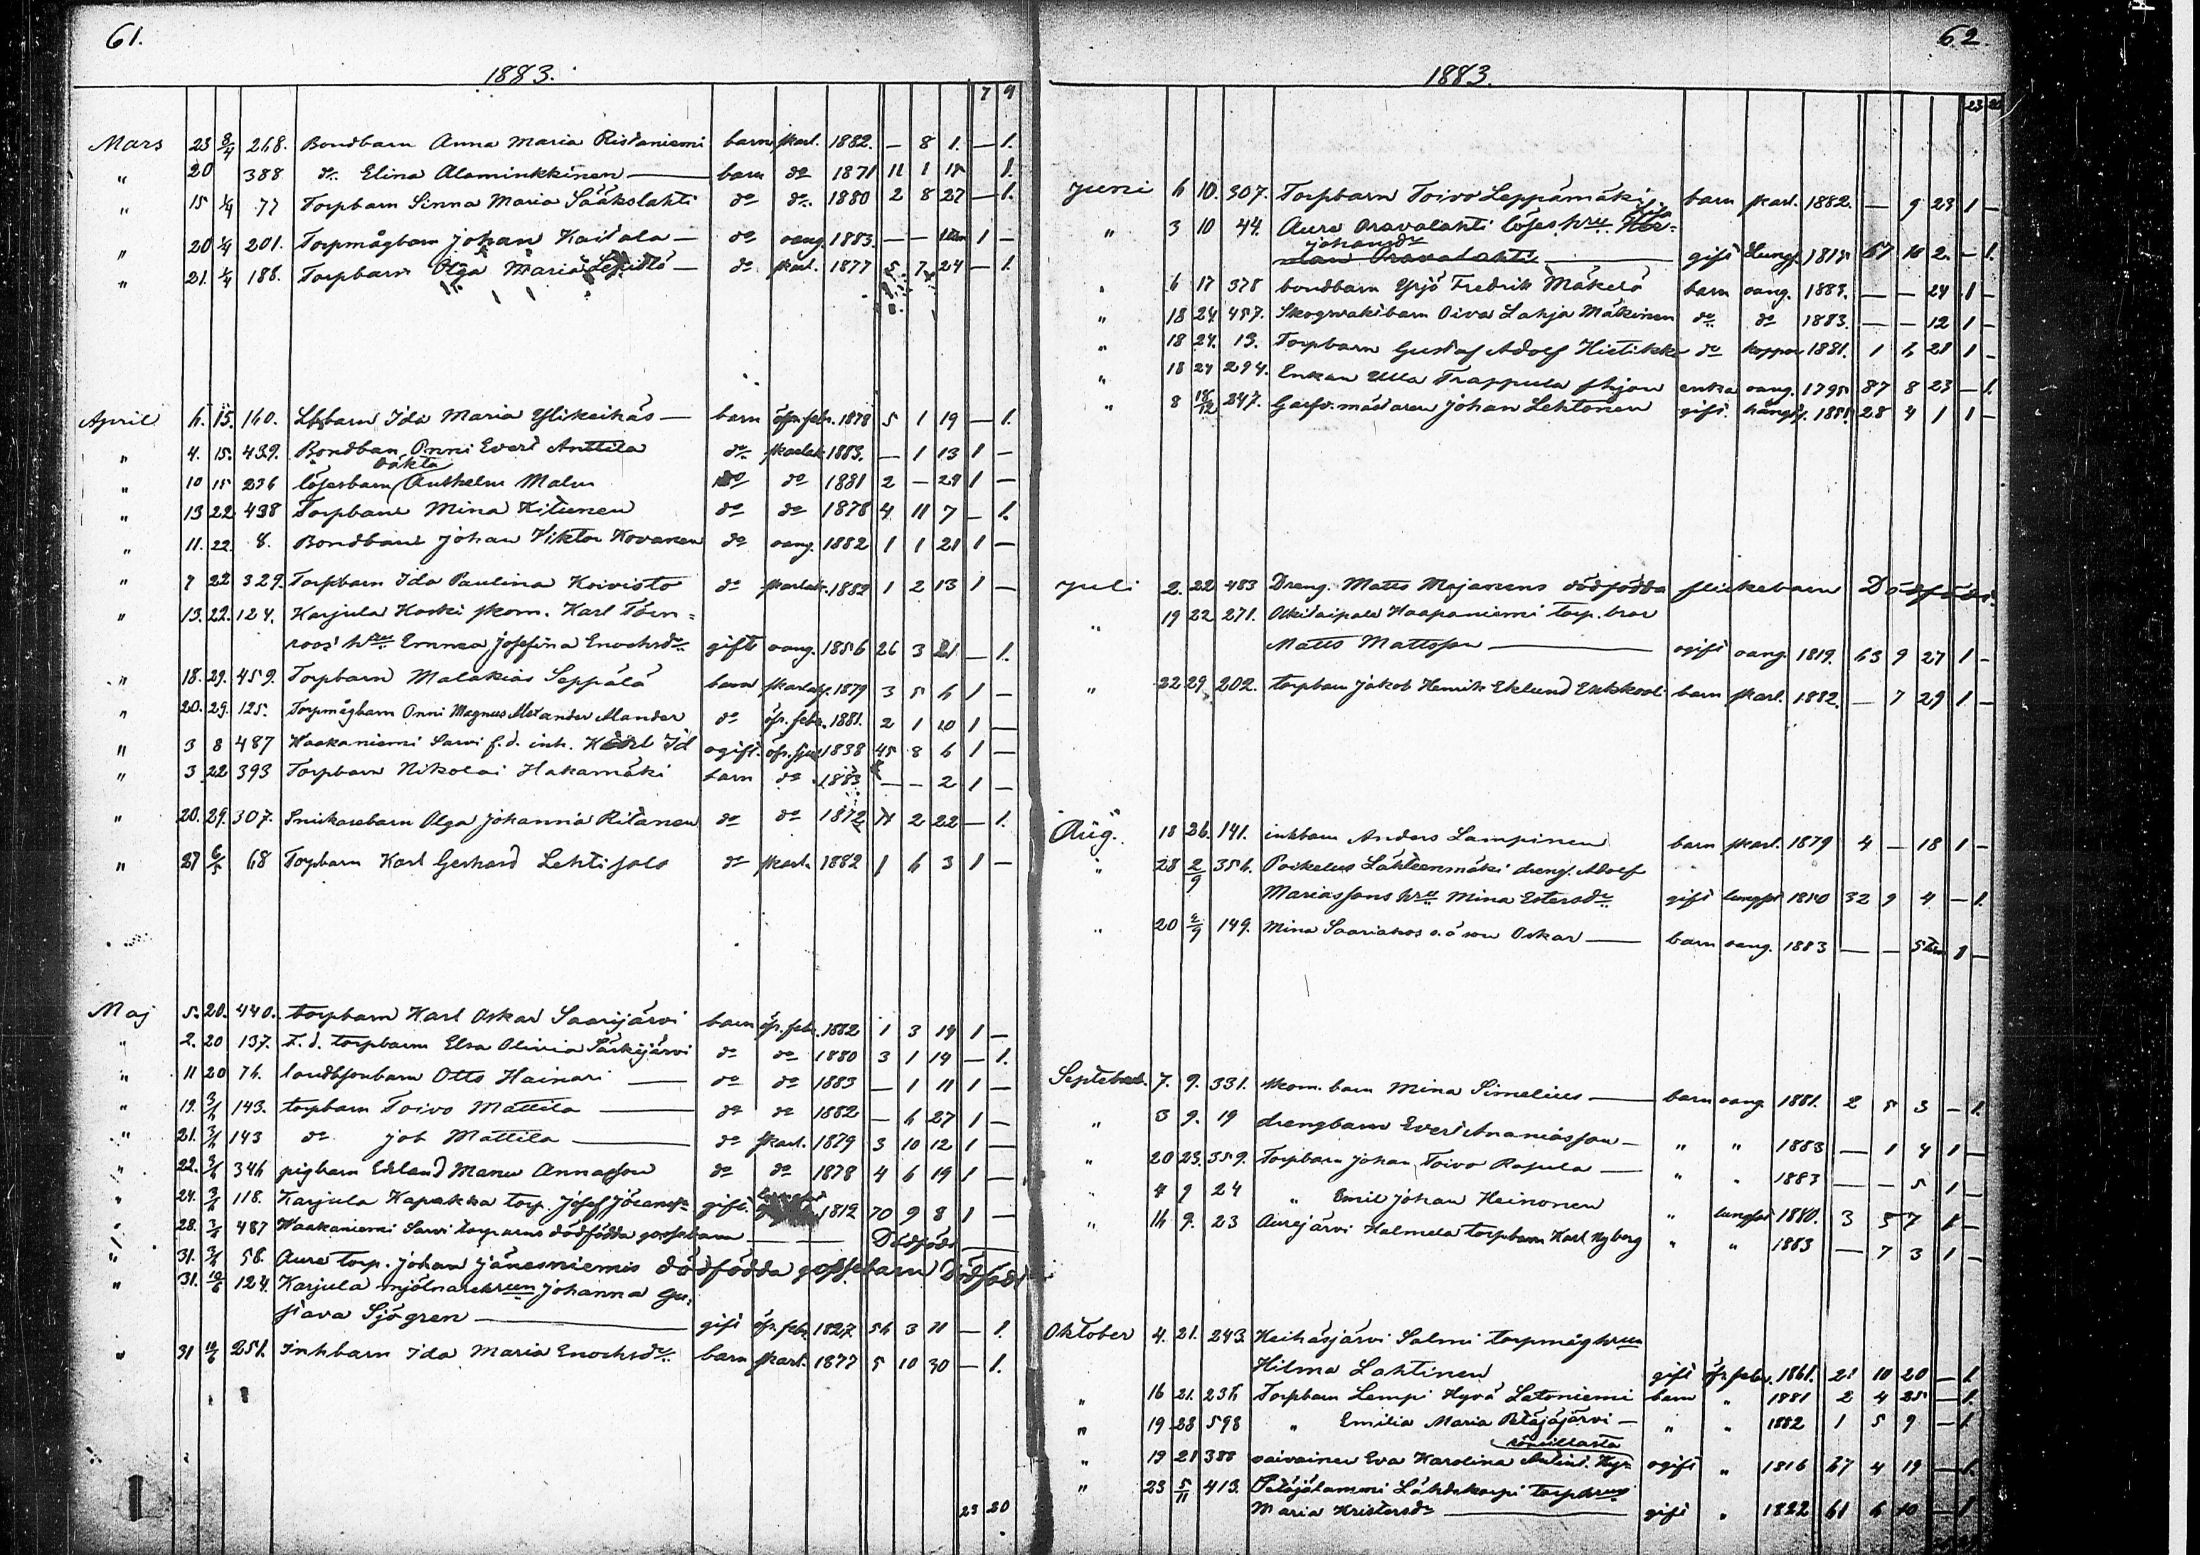 61.
1883.
7 9
Mars 23 8/4 268. Bondbarn Anna Maria Ristaniemi barn skarl. 1882. — 8 1. — 1.
" 20 388 do. Elina Alaminkkinen — barn do 1871 11 1 18 1.
" 15 1/4 77 Torpbarn Sinna Maria Sääkslahti do do. 1880 2 8 27 — 1.
" 20 1/4 201. Torpmågbarn Johan Kaitala — do oang. 1883. — — 1 —
" 21. 1/4 188. Torpbarn Olga Maria — do skarl. 1877 5 7 24 — 1.
April 6. 15. 160. barn Ida Maria Ylikeihäs — barn öfv. febr. 1878 5 1 19 — 1.
" 4. 15. 439. Bondbarn Onni Evert Anttila do skarlak. 1883. — 1 13 1 —
" 10 15 236 lösesbarn Anthelm Malm do do 1881 2 — 29 1 —
" 13 22 438 Torpbarn Mina Kitunen do do 1878 4 11 7 — 1.
" 11. 22. 8. Bondbarn Johan Viktor Kovanen do oang. 1882 1 1 21 1 —
" 7 22 329. Torpbarn Ida Paulina Koivisto do skarlak. 1882 1 2 13 1 —
" 13. 22. 124. Karjula Koski skom. Karl Törn=
roos' hru Emma Josefina Enochsdr. gift oang. 1856 26 3 21 — 1.
" 18. 29. 459. Torpbarn Malakias Seppälä barn skarlak. 1879 3 5 6 1 —
" 20. 29. 125. Torpmågbarn Onni Magnus Alexander Alander do öfv. febr. 1881. 2 1 10 1 —
" 3 8 487 Haakaniemi Sarvi f.d. inh. ogift. 1838 45 8 6 1 —
" 3 22 393 Torpbarn Nikolai Hakamäki barn do 1883 — — 2 1 —
" 20. 29. 307. Snickarebarn Olga Johanna Ritanen do do 1872 2 22 — 1.
" 27 6/5 68 Torpbarn Karl Gerhard Lehtisalo do skarl. 1882 1 6 3 1 —
Maj 5. 20. 440. torpbarn Karl Oskar Saarijärvi barn öfv. febr. 1882 1 3 19 1 —
" 2. 20 137. f.d. torpbarn Elsa Olivia Särkijärvi do do 1880 3 1 19 — 1.
" 11 20 76. landbondbarn Otto Hainari — do do 1883 — 1 11 1 —
" 19. 3/6 143. torpbarn Toivo Mattila — do do 1882 — 6 27 1 —
" 21. 3/6 143 do Job Mattila — do skarl. 1879 3 10 12 1 —
" 22. 3/6 346 pigbarn Erland Manu Annasson do do 1878 4 6 19 1 —
" 24. 3/6 118. Karjula Kapakka torp. Josef gift. 1812 70 9 8 1 —
" 28. 3/6 487 Haakaniemi Sarvi torparns dödfödda gossebarn — Dödfödt
" 31. 3/6 58. Aure torp. Johan Jänesniemis dödfödda gossebarn Dödfödt
" 31. 10/6 124. Karjula mjölnarehrun Johanna Gu=
stava Sjögren — gift öfv. febr. 1827. 56 3 11 — 1.
" 31 10/6 251. Inhbarn Ida Maria Enochsdr. barn skarl. 1877 5 10 30 — 1.
23 20
62.
1883.
23 20
Juni 6 10. 307. Torpbarn Toivo Leppämäki barn skarl. 1882. — 9 23 1 —
" 3 10 44. Aure Oravalahti löses hru
Johansdr — gift Lungs. 67 10 2. — 1.
" 6 17 378 bondbarn Yrjö Fredrik Mäkelä barn oang. 1883. — — 24 1 —
" 18 24 457. Skogwaktbarn Oiva Lahja Mäkinen do do 1883. — — 12 1 —
" 18 24. 13. Torpbarn Gustaf Adolf Hietikko do koppor 1881. 1 6 21 1 —
" 18 24 294. Enkan Ulla Trappula enka oang. 1795 87 8 23 — 1.
" 8 18/12 247. Garfv. mästaren Johan Lehtonen gift. 28 4 1 1 —
Juli 2. 22 483 Dreng. Matts Majanens dödfödda flickebarn Dödfödt.
" 19 22 271. Haapaniemi torp. bror
Matts Mattsson — ogift oang. 1819. 63 9 27 1 —
" 22 29 202. torpbarn Jakob Henrik Eklund barn skarl. 1882. — 7 29 1 —
Aug. 18 26. 141. inhbarn Anders Lampinen barn skarl. 1879 4 — 18 1 —
" 28 2/9 356. Poikelus Lähteenmäki dreng. Adolf
Mariassons hru Mina gift lungs. 1850 32 9 4 — 1.
" 20 2/9 149. Mina Saariahos o.ä son Oskar — barn oang. 1883 — — 1 —
September. 7. 9. 331. skom. barn Mina Simelius — barn oang. 1881. 2 5 3 — 1.
" 3 9. 19 drengbarn Evert Ananiasson — " " 1883 — 1 4 1 —
" 20 23. 359. Torpbarn Johan Toivo Rajula — " " 1883 — — 5 1 —
" 4 9 24 " Emil Johan Heinonen " lungs. 1880. 3 5 7 1 —
" 16 9. 23 Aurejärvi Halmela torpbarn Karl Nyberg " " 1883 — 7 3 1 —
Oktober 4. 21. 243. Keihäsjärvi Salmi torpmåghrun
Hilma Lahtinen gift öfv. febr. 1861. 21 10 20 — 1.
" 16 21. 236 Torpbarn Lempi Hyvä Latoniemi barn " 1881 2 4 25 — 1.
" 19 28 598 " Emilia Maria Petäjäjärvi — " " 1882 1 5 9 — 1.
" 19 21 388 vaivainen Eva Karolina ogift " 1816 67 4 19 — 1.
" 23 5/11 413. Petäjälammi Lähdekorpi torphrun
Maria Kristersdr — gift " 1822 61 6 10 — 1